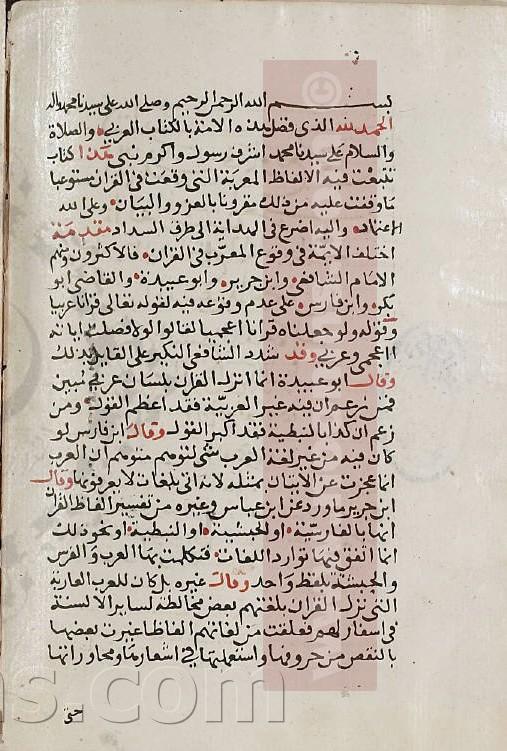 بسم الله الرحمن الرحيم وصلى الله على سيدنا محمد واله
الحمد لله الذي فضل هذه الامة بالكتاب العربي والصلاة
والسلام على سيدنا محمد اشرف رسول واكرم نبي هذا كتاب
تتبعت فيه الالفاظ المعربة التي وقعت في القران مستوعبا
ما وقفت عليه من ذلك مقرونا بالعزو والبيان وعلى الله
الاعتماد واليه اضرع في الهداية الى طرف السداد مقدمة
اختلف الايمة في وقوع المعرب في القران فالاكثرون ومنهم
الامام الشافعي وابن جرير وابو عبيدة والقاضي ابو
بكر وابن فارس على عدم وقوعه فيه لقوله تعالى قرانا عربيا
وقوله ولو جعلناه قرانا اعجميا لقالوا لولا فصلت اياته
ااعجمي وعربي وقد شدد الشافعي النكير على القايل بذلك
وقال ابو عبيدة انما انزل القران بلسان عربي مبين
فمن زعم ان فيه غير العربية فقد اعظم القول ومن
زعم ان كذا بالنبطية فقد اكبر القول وقال ابن فارس لو
كان فيه من غير لغة العرب شي لتوهم متوهم ان العرب
انما عجزت عن الاتيان بمثله لانه اتى بلغات لا يعرفونها وقال
ابن جرير ما ورد عن ابن عباس وغيره من تفسير الفاظ القران
انها بالفارسية او الحبشية او النبطية او نحو ذلك
انما اتفق فيها توارد اللغات فتكلمت بها العرب والفرس
والحبشة بلفظ واحد وقال غيره بل كان للعرب العاربة
التي نزل القران بلغتهم بعض مخالطة لساير الالسنة
في اسفار لهم فعلقت من لغاتهم الفاظا غيرت بعضها
بالنقص من حروفها واستعملتها في اشعارها ومحاوراتها
حتى
ns.com